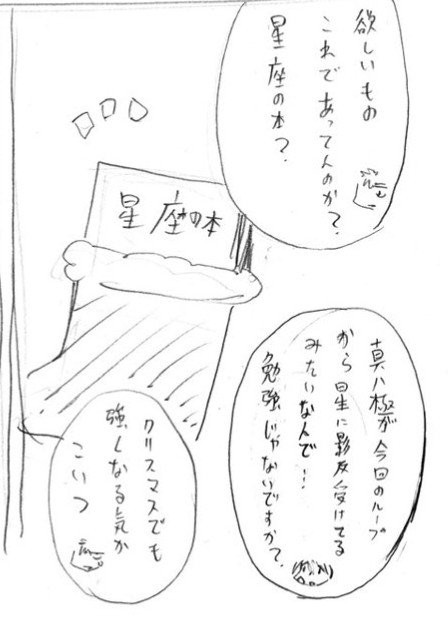 欲しいもの
これであってんのか?
星座の本?
星座の本
真八極が今回のループ
から星に影反受けてる
みたいなんで…
勉強じゃないですか?
クリスマスでも
強くなる気か
こいつ